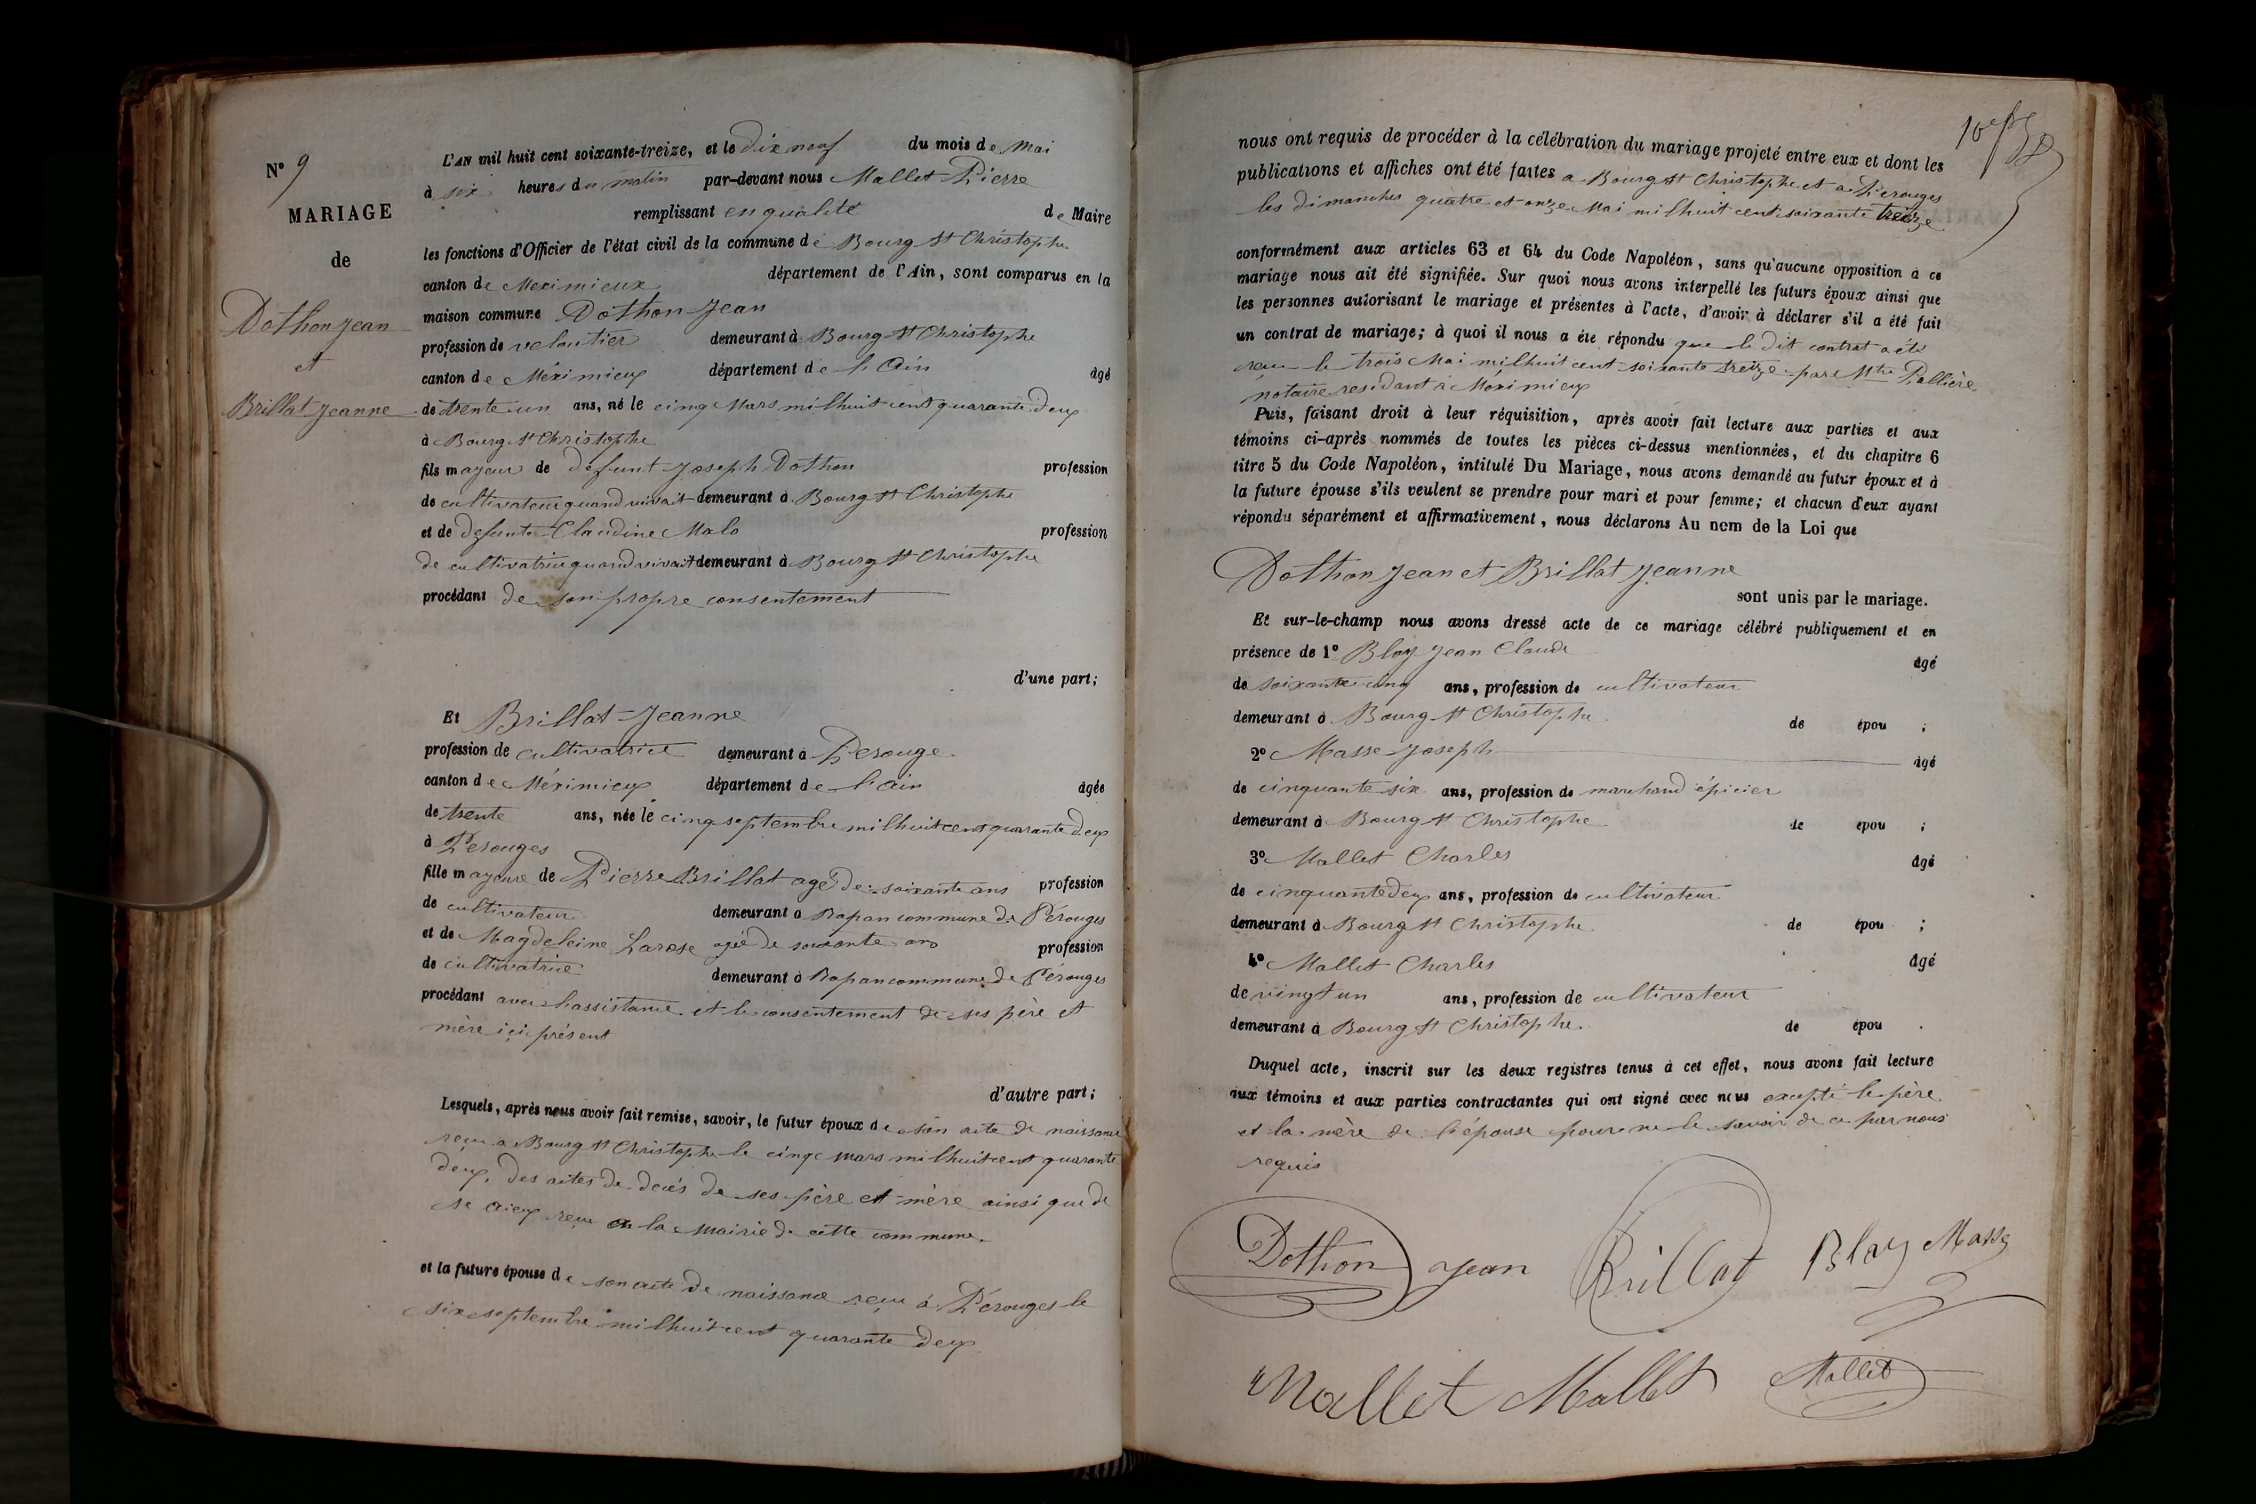 N° 9
MARIAGE
de
Dothon Jean
et
Brillat Jeanne
L'AN mil huit cent soixante-treize, et le dix neuf du mois de Mai
à six heures du matin par-devant nous Mallet Pierre
remplissant en qualité de Maire
les fonctions d'Officier de l'état civil de la commune de Bourg St Christophe
canton de Meximieux département de l'Ain, sont comparus en la
maison commune Dothon Jean
profession de veloutier demeurant à Bourg St Christophe
canton de Méximieux département de l'Ain âgé
de trente un ans, né le cinq Mars mil huit cent quarante deux
à Bourg St Christophe
fils mayeur de défunt Joseph Dothon profession
de cultivateur quand vivait demeurant à Bourg St Christophe
et de defunte Claudine Malo profession
de cultivatrice quand vivait demeurant à Bourg St Christophe
procédant de son propre consentement
d'une part;
Et Brillat Jeanne
profession de cultivatrice demeurant à Perouge
canton de Méximieux département de l'Ain âgée
de trente ans, née le cinq septembre mil huit cent quarante deux
à Perouges
fille mayeure de Pierre Brillat agé de soixante ans profession
de cultivateur demeurant à Rapan commune de Pérouges
et de Magdeleine Larose agée de soixante ans profession
de cultivatrice demeurant à Rapan commune de Pérouges
procédant avec l'assistance et le consentement de ses père et
mère ici présent
d'autre part;
Lesquels, après nous avoir fait remise, savoir, le futur époux de son acte de naissance
reçu a Bourg St Christophe le cinq mars mil huit cent quarante
deux, des actes de decés de ses père et mère ainsi que de
se aieux reçu a la Mairie de cette commune.
et la future épouse de son acte de naissance reçu à Pérouges le
six septembre mil huit cent quarante deux
nous ont requis de procéder à la célébration du mariage projeté entre eux et dont les
publications et affiches ont été faites a Bourg St Christophe et a Perouges
les dimanches quatre et onze Mai mil huit cent soixante treize
conformément aux articles 63 et 64 du Code Napoléon, sans qu'aucune opposition à ce
mariage nous ait été signifiée. Sur quoi nous avons interpellé les futurs époux ainsi que
les personnes autorisant le mariage et présentes à l'acte, d'avoir à déclarer s'il a été fait
un contrat de mariage; à quoi il nous a été répondu que le dit contrat a été
reçu le trois Mai mil huit cent soixante treize par Mtre Pallière
notaire residant à Méximieux
Puis, faisant droit à leur réquisition, après avoir fait lecture aux parties et aux
témoins ci-après nommés de toutes les pièces ci-dessus mentionnées, et du chapitre 6
titre 5 du Code Napoléon, intitulé Du Mariage, nous avons demandé au futur époux et à
la future épouse s'ils veulent se prendre pour mari et pour femme; et chacun d'eux ayant
répondu séparément et affirmativement, nous déclarons Au nom de la Loi que
Dothon Jean et Brillat Jeanne
sont unis par le mariage.
Et sur-le-champ nous avons dressé acte de ce mariage célébré publiquement et en
présence de 1° Bloy Jean Claude âgé
de soixante cinq ans, profession de cultivateur
demeurant à Bourg St Christophe de épou ;
2° Masse Joseph âgé
de cinquante six ans, profession de marchand épicier
demeurant à Bourg St Christophe de epou ;
3° Mallet Charles âgé
de cinquante deux ans, profession de cultivateur
demeurant à Bourg St Christophe de épou ;
4° Mallet Charles âgé
de vingt un ans, profession de cultivateur
demeurant à Bourg St Christophe. de épou .
Duquel acte, inscrit sur les deux registres tenus à cet effet, nous avons fait lecture
aux témoins et aux parties contractantes qui ont signé avec nous excepté le père
et la mère de l'épouse pour ne le savoir de ce par nous
requis
Dothon Jean Brillat Bloy Masse
Mallet Mallet Mallet